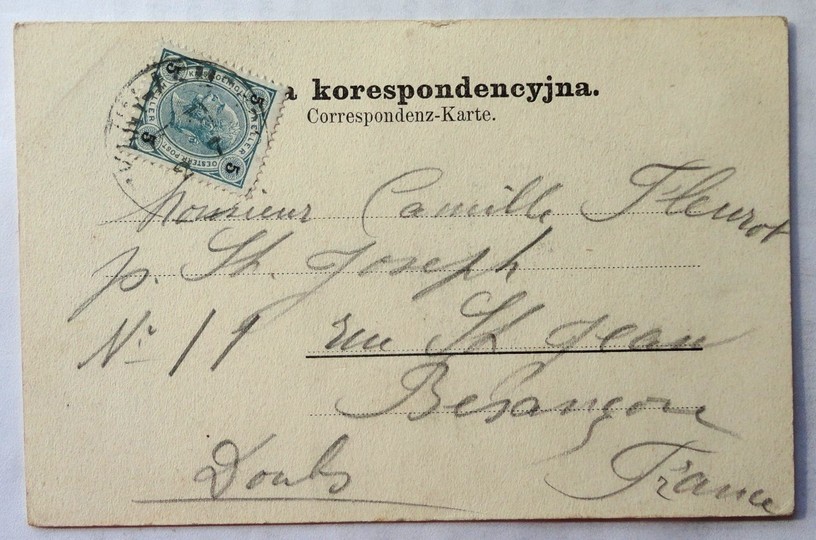 a korespondencyjna.
Correspondenz-Karte.
5 5 5 5
OESTERR. POST
Monsieur Camille Fleurot
p. St. Joseph
Nr 19 rue St Jean
Besançon
Doubs France